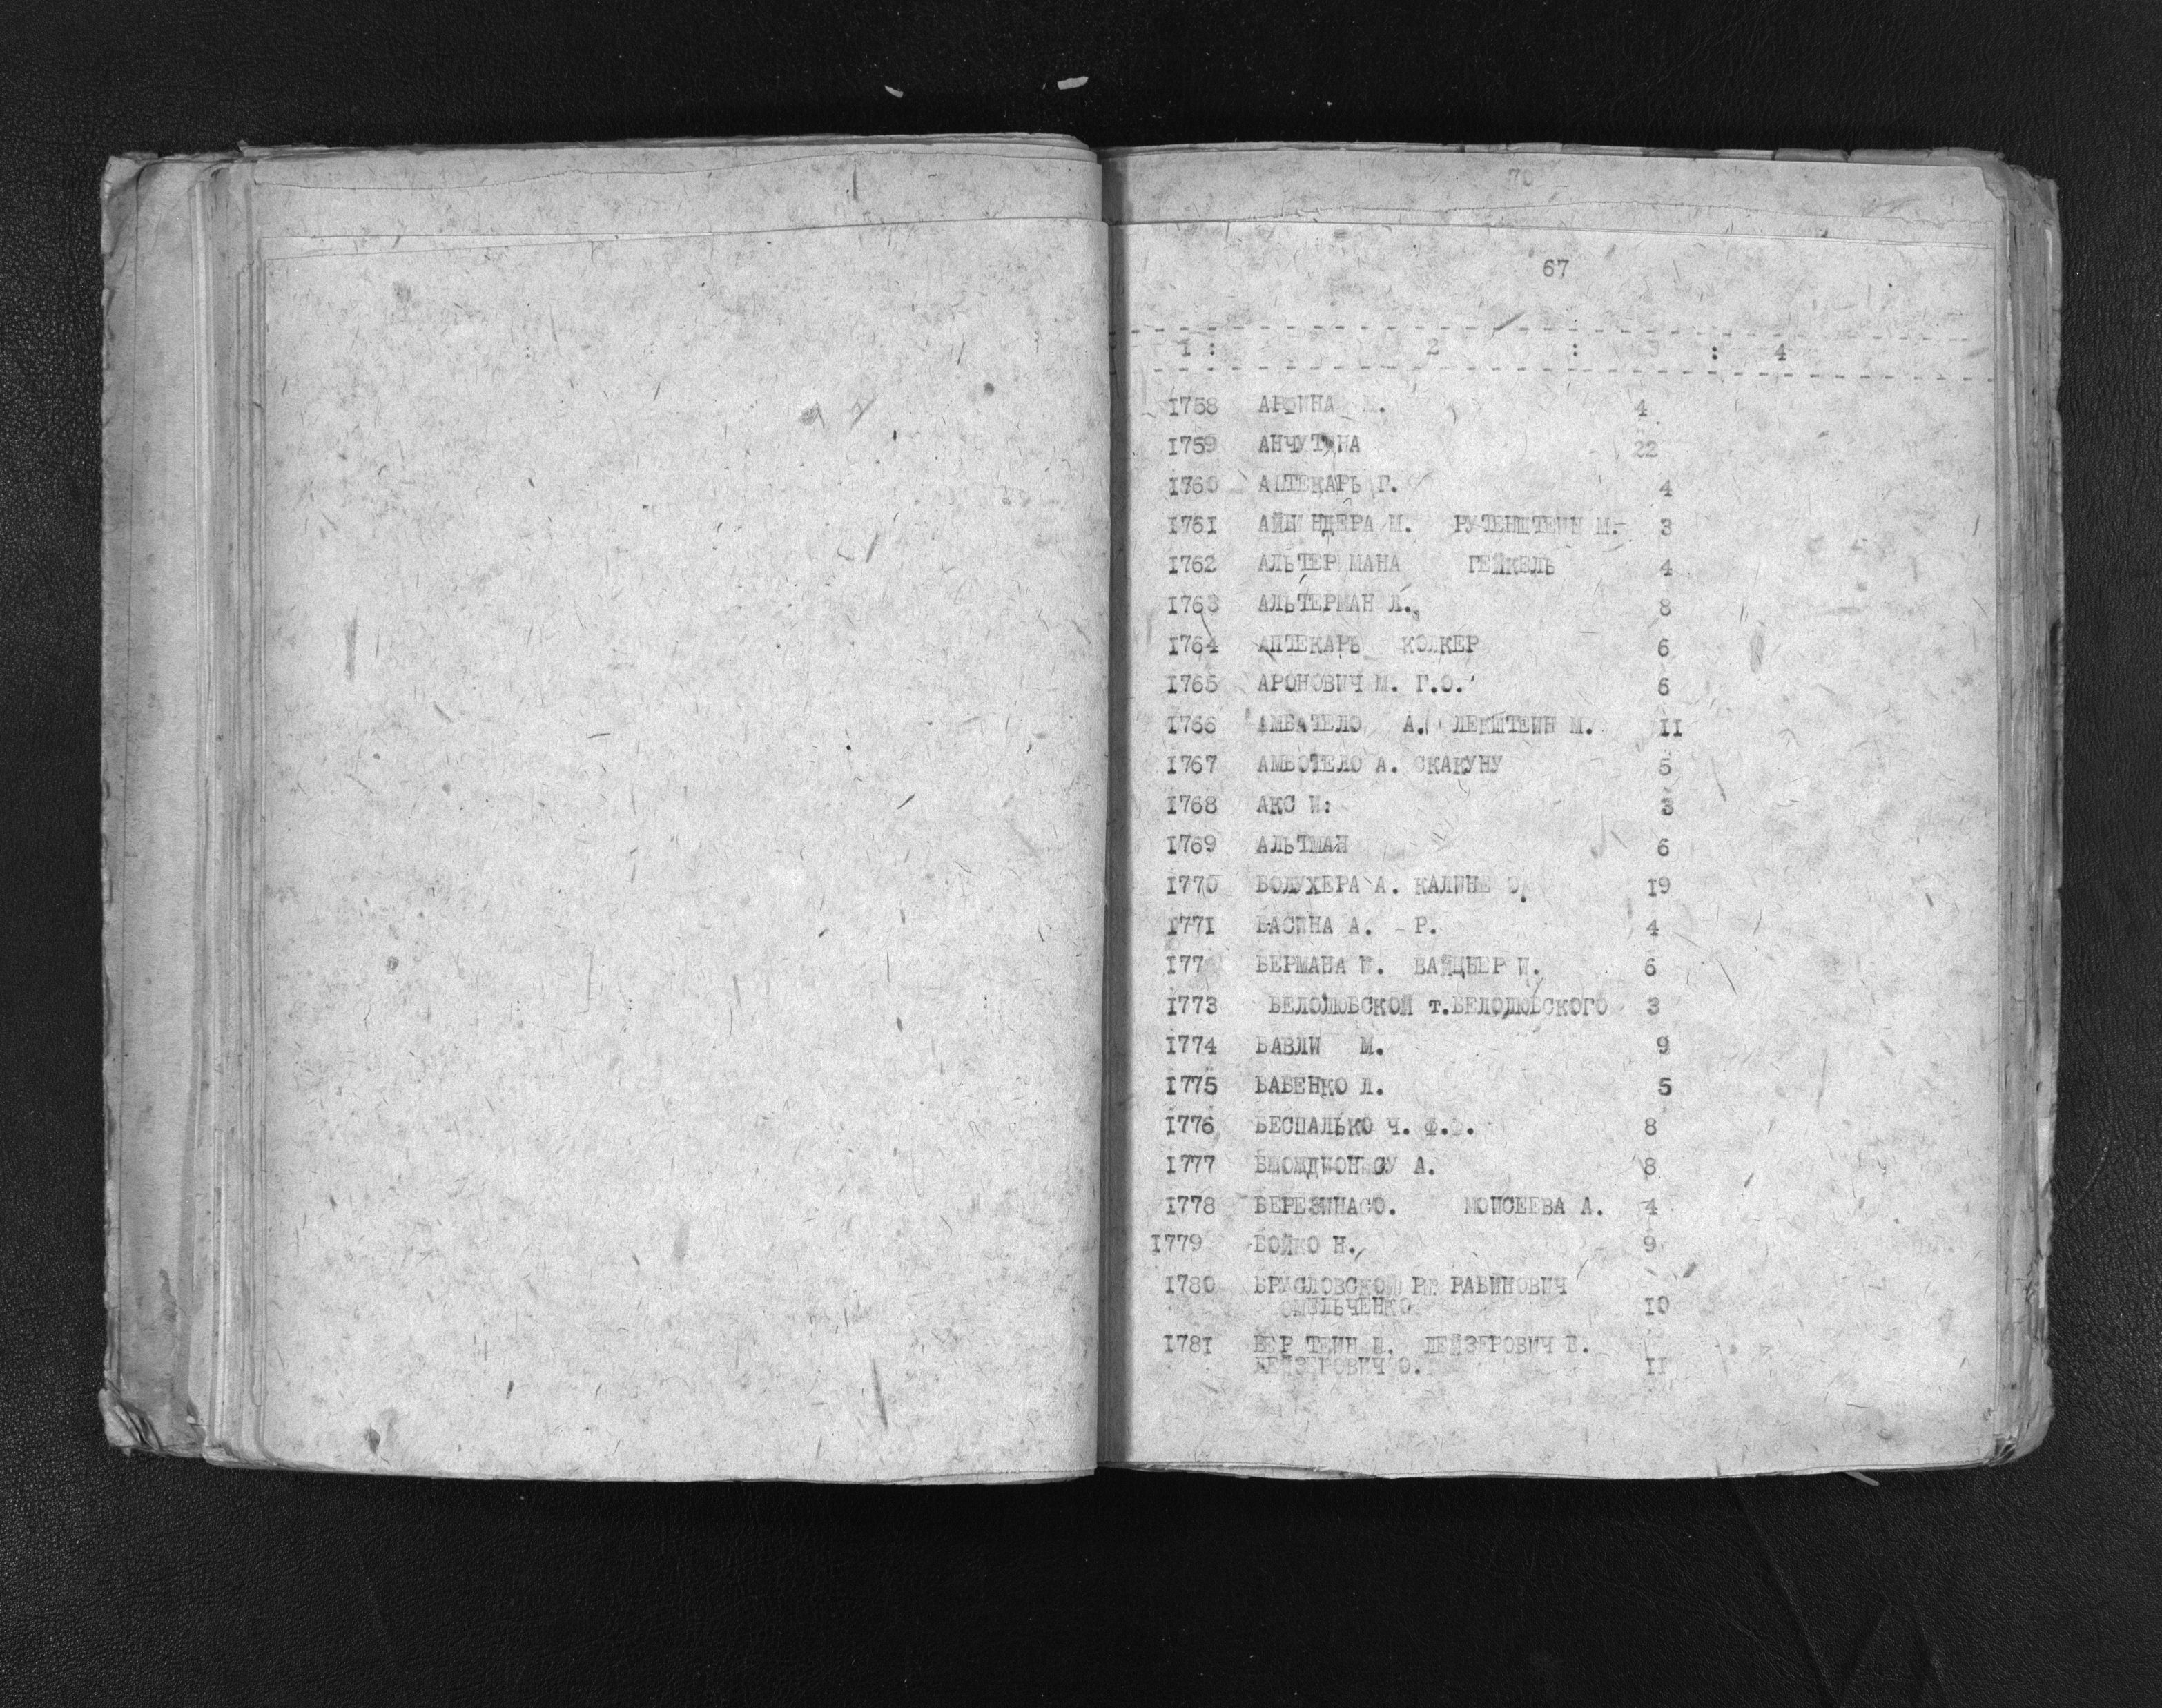 70
67
1 : 2 : 3 : 4
1758 АРФИНА М. 4
1759 АНЧУТИНА 22
1760 АПТЕКАРЬ Г. 4
1761 М. РУТЕНШТЕЙН М. 3
1762 АЛЬТЕР МАНА ГЕЙКЕЛЬ 4
1763 АЛЬТЕРМАН Л., 8
1764 АПТЕКАРЬ КОЛКЕР 6
1765 АРОНОВИЧ М. Г.О. 6
1766 АМБАТЕЛО А. ЛЕКШТЕЙН М. 11
1767 АМБОТЕЛО А. СКАКУНУ 5
1768 АКС И: 3
1769 АЛЬТМАН 6
1770 БОЛУХЕРА А. КАЛИНЕ 19
1771 БАСИНА А. Р. 4
177 БЕРМАНА И. ВАЙЦНЕР И. 6
1773 БЕЛОЛЮБСКОЙ т.БЕЛОЛЮБСКОГО 3
1774 БАВЛИ М. 9
1775 БАБЕНКО Л. 5
1776 БЕСПАЛЬКО Ч. Ф. 8
1777 А. 8
1778 БЕРЕЗИНАСО. МОИСЕЕВА А. 4
1779 БОЙКО Н. 9
1780 БРАСЛОВСКОЙ РАБИНОВИЧ
ОМЕЛЬЧЕНКО 10
1781 ЛЕЙЗЕРОВИЧ Б.
ЛЕЙЗЕРОВИЧ О. 11